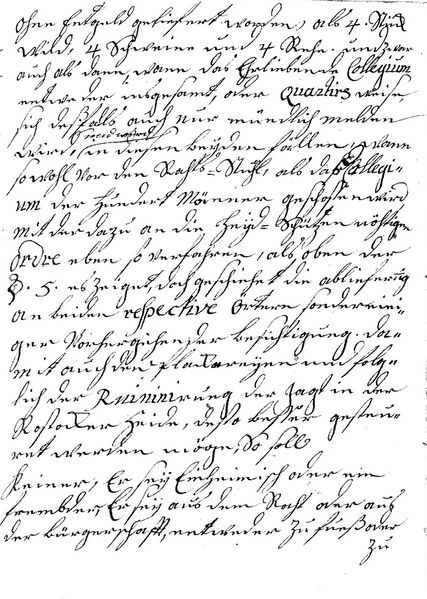 ohne Entgeld geliefert worden, als 4. Stück
Wild, 4 Schweine und 4 Rehe. und zwar
auch als dann, wann das Ehrliebende Collegium
entweder insgesamt, oder Quartirs weise,
sich deßfals auch nur mündlich melden
wird, in diesen beyden fällen, wann
so wohl vor den Rahts-Stuhl, als das Collegi-
um der Hundert Männer geschossen wird
mit der dazu an die Heyd-Schützen nöhtigen
Ordre eben so verfahren, als oben der
§. 5. es zeiget, doch geschiehet die ablieferung
an beiden respective Örtern sonder eini-
ger Vorhergehender besichtigung. Da-
mit auch den Plackereyen und folg-
lich der Ruinirung der Jagt in der
Rostocker Heide, desto besser gesteu-
ret werden möge, So soll
Keiner, Er sey Einheimisch oder ein
frembder, Er sey aus dem Raht oder aus
der Bürgerschafft, entweder zu fueß oder
zu